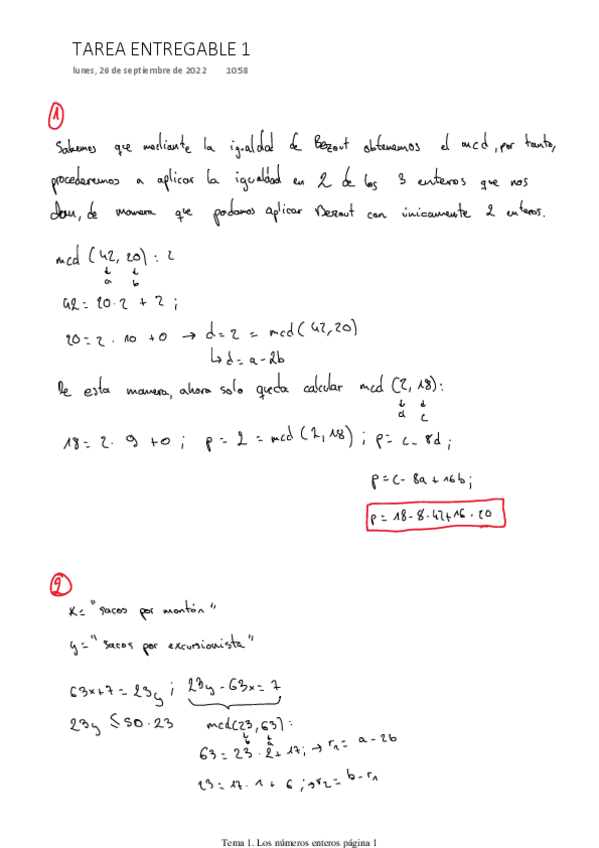 TAREA ENTREGABLE 1
lunes, 26 de septiembre de 2022 10:58
1
Sabemos que mediante la igualdad de Bezout obtenemos el mcd, por tanto,
procederemos a aplicar la igualdad en 2 de los 3 enteros que nos
dan, de manera que podamos aplicar Bezout con únicamente 2 enteros.
mcd (42, 20) : 2
↓ ↓
a b
42 = 20·2 + 2 ;
20 = 2 · 10 + 0 → d = 2 = mcd (42, 20)
↳ d = a - 2b
De esta manera, ahora solo queda calcular mcd (2, 18):
↓ ↓
d c
18 = 2 · 9 + 0 ; p = 2 = mcd (2, 18) ; p = c - 8d ;
p = c - 8a + 16b ;
p = 18 - 8·42 + 16·20
2
x = "sacos por montón"
y = "sacos por excursionista"
63x + 7 = 23y ; 23y - 63x = 7
23y ≤ 50·23 mcd(23, 63) :
↓ ↓
b a
63 = 23 · 2 + 17 ; → r₁ = a - 2b
23 = 17 · 1 + 6 ; → r₂ = b - r₁
Tema 1. Los números enteros página 1